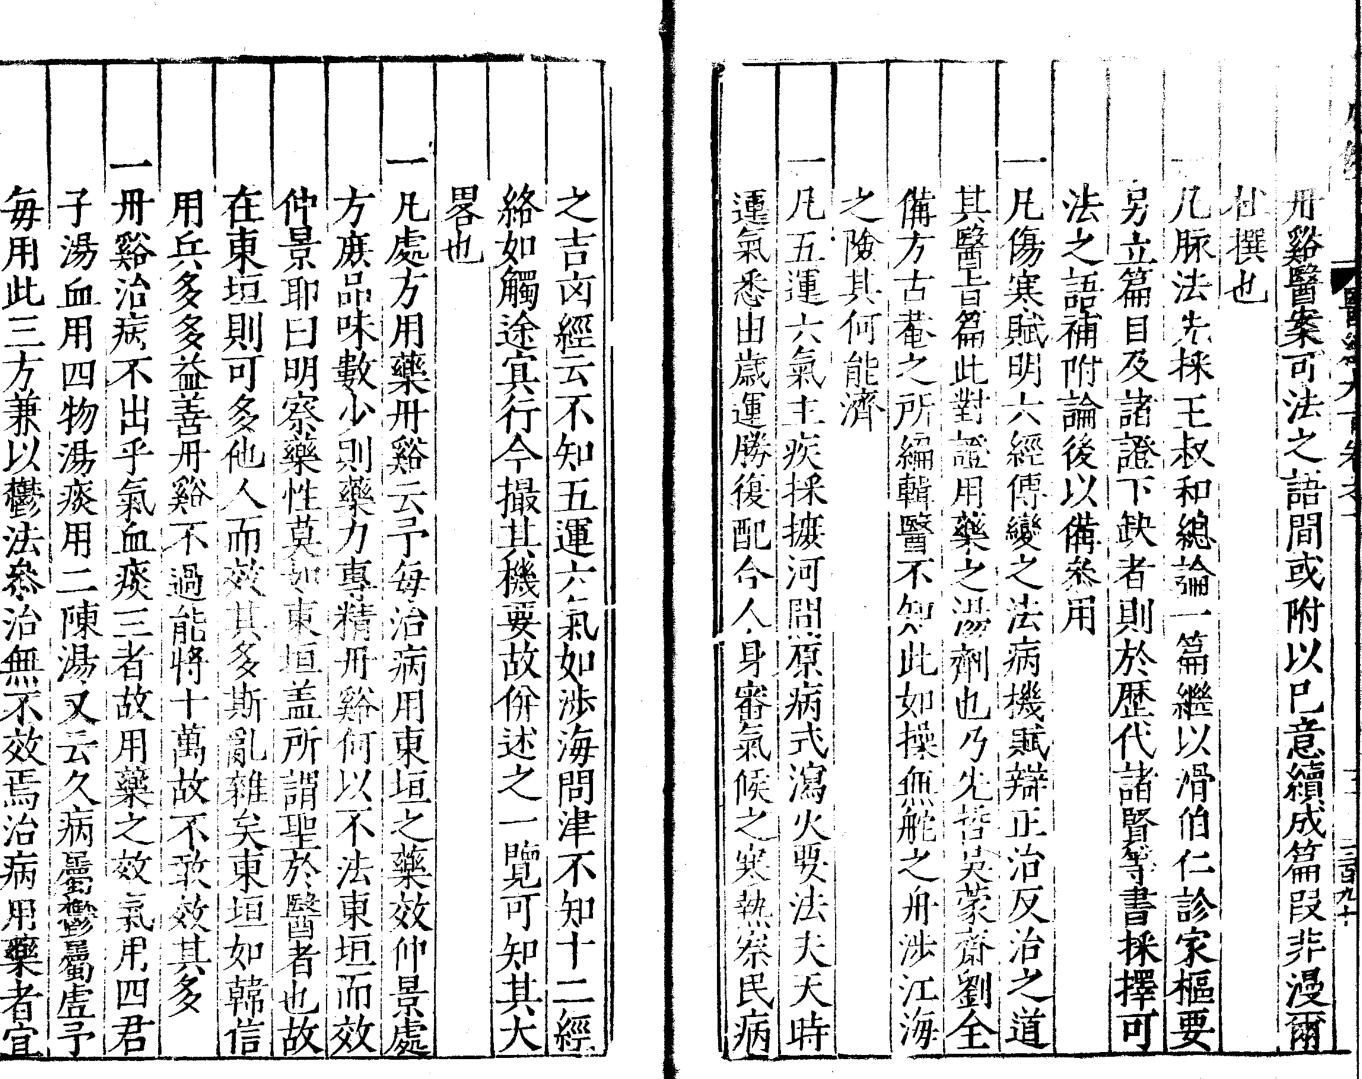 丹谿醫案可法之語間或附以已意續成篇段非漫爾
杜撰也
一凡脉法先採王叔和總論一篇繼以滑伯仁診家樞要
另立篇目及諸證下缺者則於歷代諸賢等書採擇可
法之語補附論後以備叅用
一凡傷寒賦明六經傳變之法病機賦辯正治反治之道
其醫旨篇此對證用藥之湯劑也乃先哲吳蒙齋劉全
備方古菴之所編輯醫不知此如操無舵之舟涉江海
之險其何能濟
一凡五運六氣主疾採摭河間原病式瀉火要法夫天時
運氣悉由歲運勝復配合人身審氣候之寒熱察民病
之吉凶經云不知五運六氣如涉海問津不知十二經
絡如觸途冥行今撮其機要故併述之一覽可知其大
畧也
一凡處方用藥丹谿云予每治病用東垣之藥效仲景處
方庶品味數少則藥力專精丹谿何以不法東垣而效
仲景耶曰明察藥性莫如東垣盖所謂聖於醫者也故
在東垣則可多他人而效其多斯亂雜矣東垣如韓信
用兵多多益善丹谿不過能將十萬故不敢效其多
一丹谿治病不出乎氣血痰三者故用藥之效氣用四君
子湯血用四物湯痰用二陳湯又云久病屬鬱屬虛予
每用此三方兼以鬱法叅治無不效焉治病用藥者宜